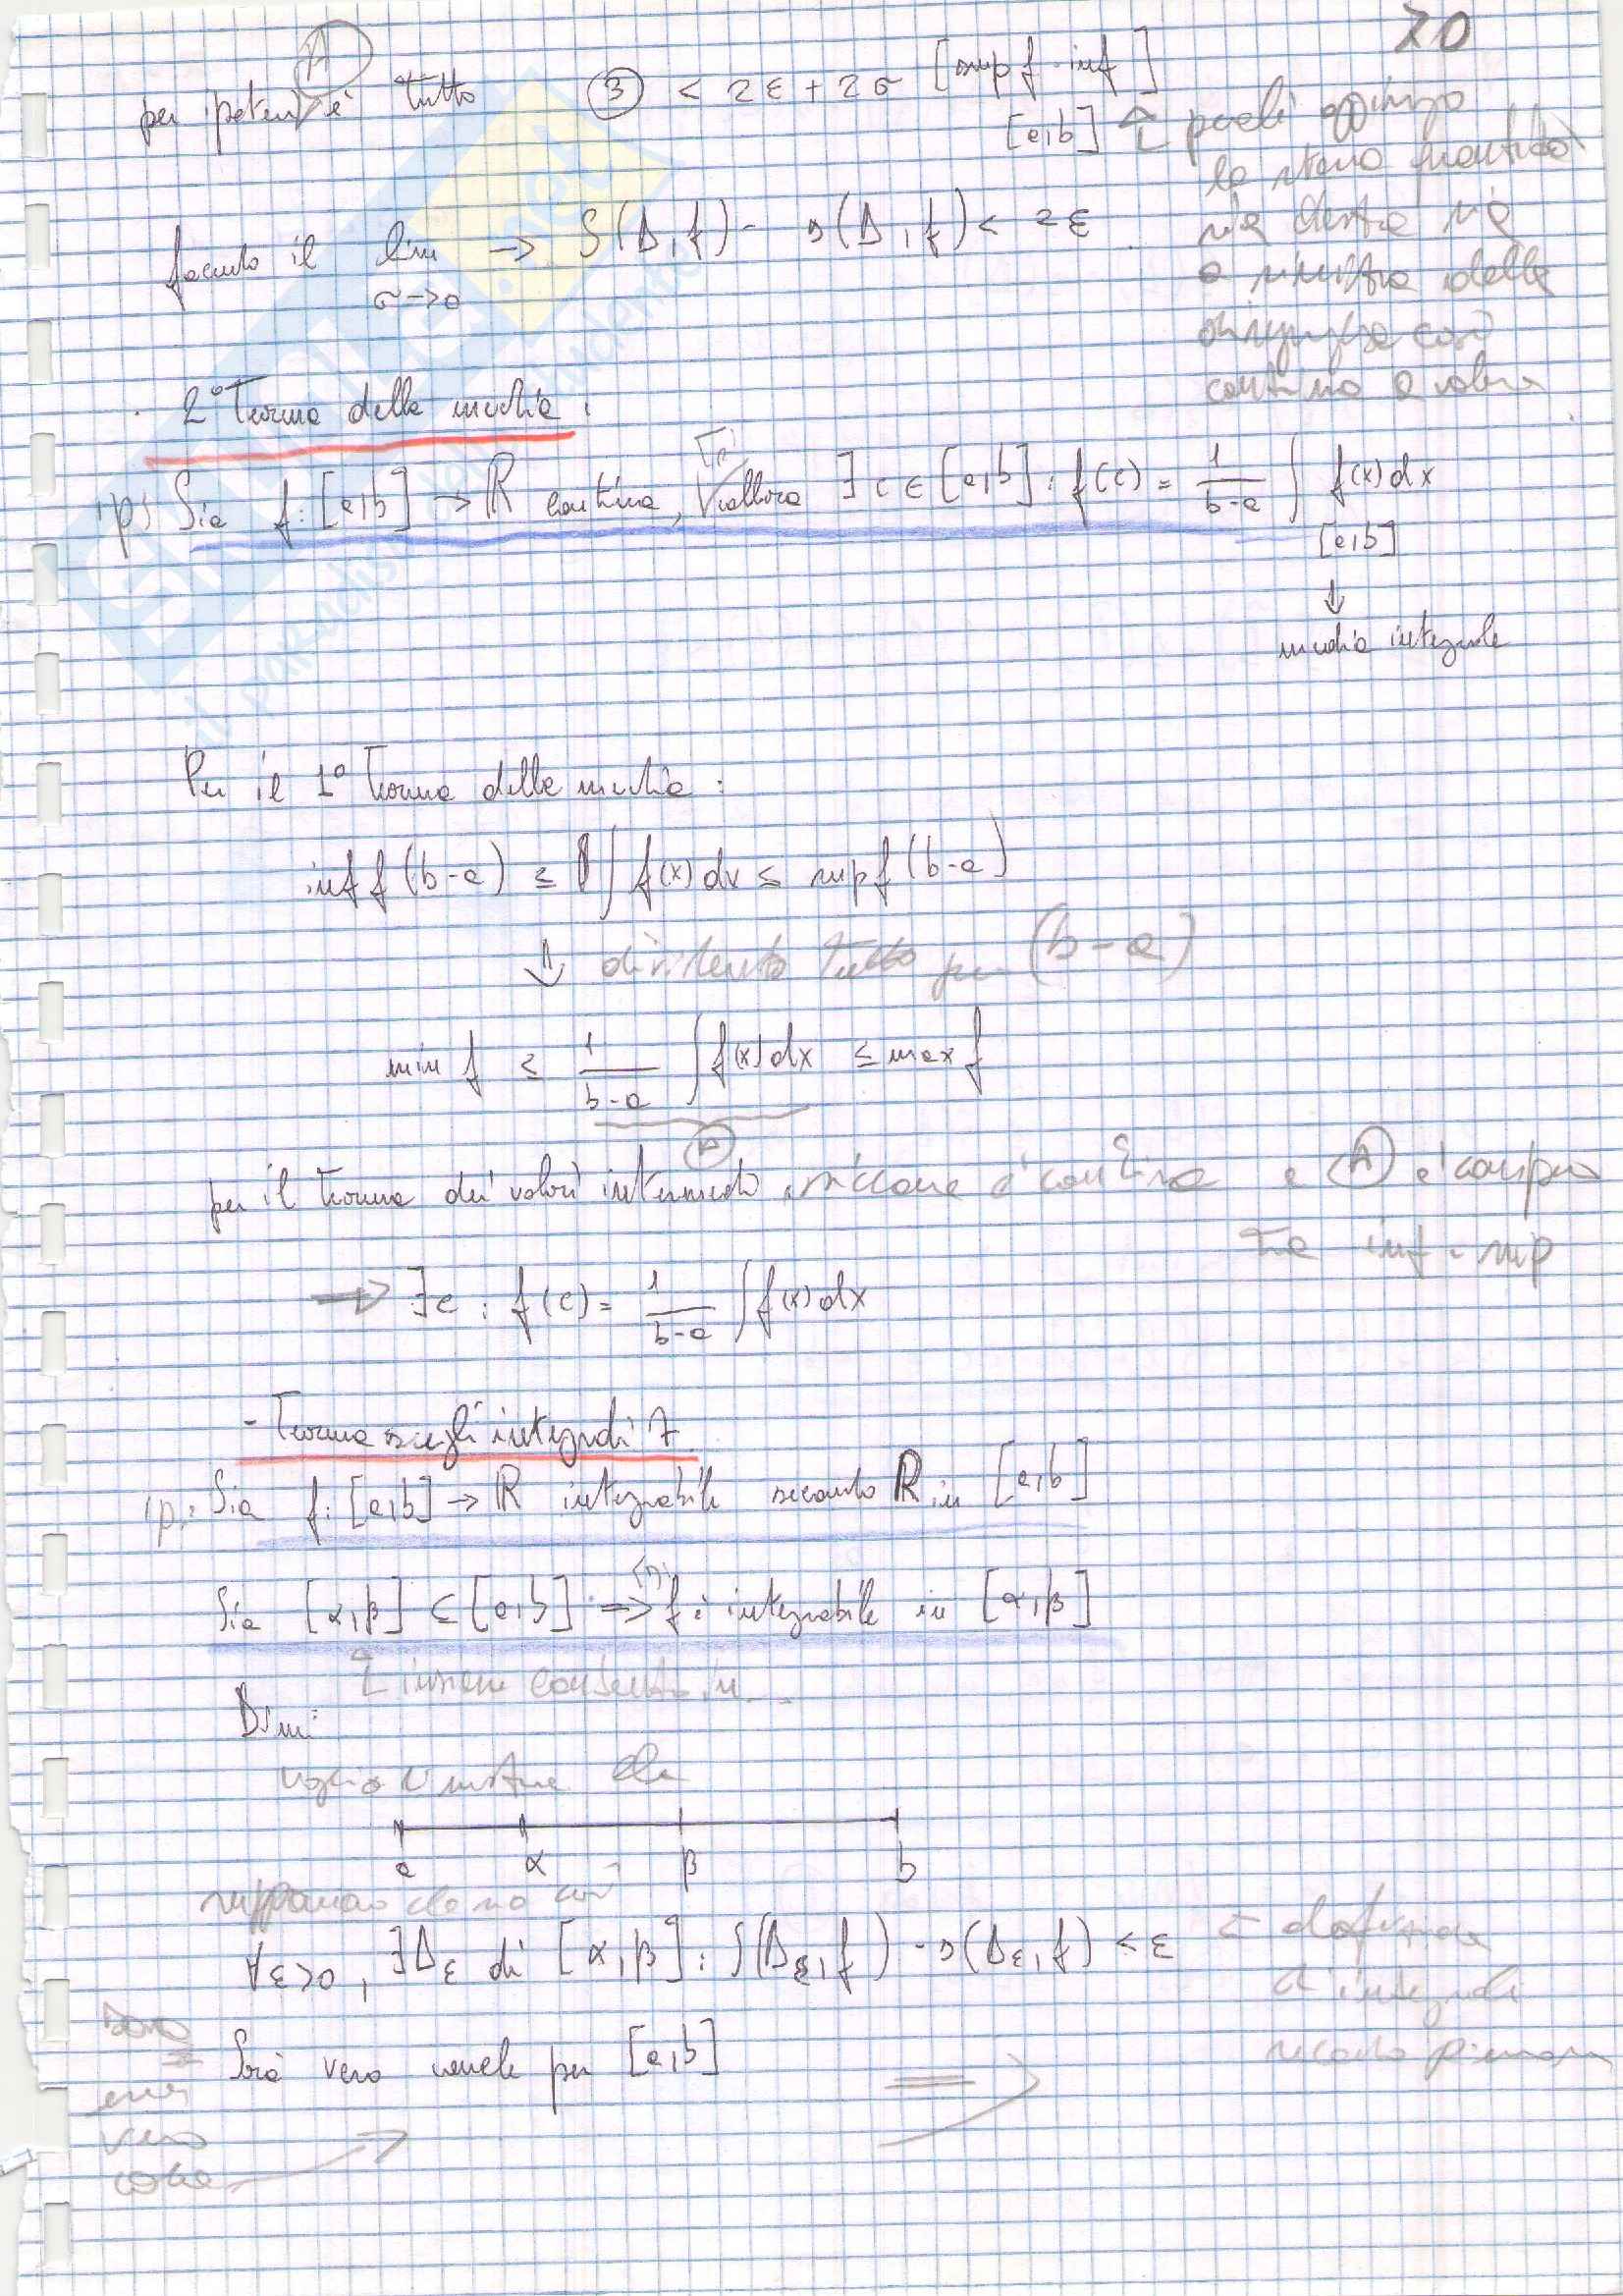 70
A
per ipotesi è tutto ③ < 2ε + 2σ [sup f - inf]
[a,b] ↑ perché aggiungo
la stessa quantità
sia a destra sia
a sinistra della
disuguaglianza così
continua a valere
facendo il lim → S(Δ,f) - s(Δ,f) < 2ε
σ→0
2° Teorema della media:
Ts:
ip) Sia f: [a,b] → ℝ continua, allora ∃ c ∈ [a,b] : f(c) = 1/(b-a) ∫ f(x)dx
[a,b]
↓
media integrale
Per il 1° Teorema della media:
inf f (b-a) ≤ ∫ f(x) dx ≤ sup f (b-a)
↓ dividendo tutto per (b-a)
min f ≤ 1/(b-a) ∫ f(x)dx ≤ max f
A
per il teorema dei valori intermedi, siccome è continua e Ⓐ è compreso
tra inf e sup
⇒ ∃c : f(c) = 1/(b-a) ∫ f(x)dx
- Teorema sugli integrali 7.
ip: Sia f: [a,b] → ℝ integrabile secondo R in [a,b]
Sia [α,β] ⊆ [a,b] ⇒ f è integrabile in [α,β]
↑ insieme contenuto in...
Dim:
voglio dimostrare che
a α β b
∀ε>0, ∃Δε di [α,β] : S(Δε,f) - s(Δε,f) < ε = definizione
d'integrali
secondo Riemann
Sarà vero anche per [a,b]